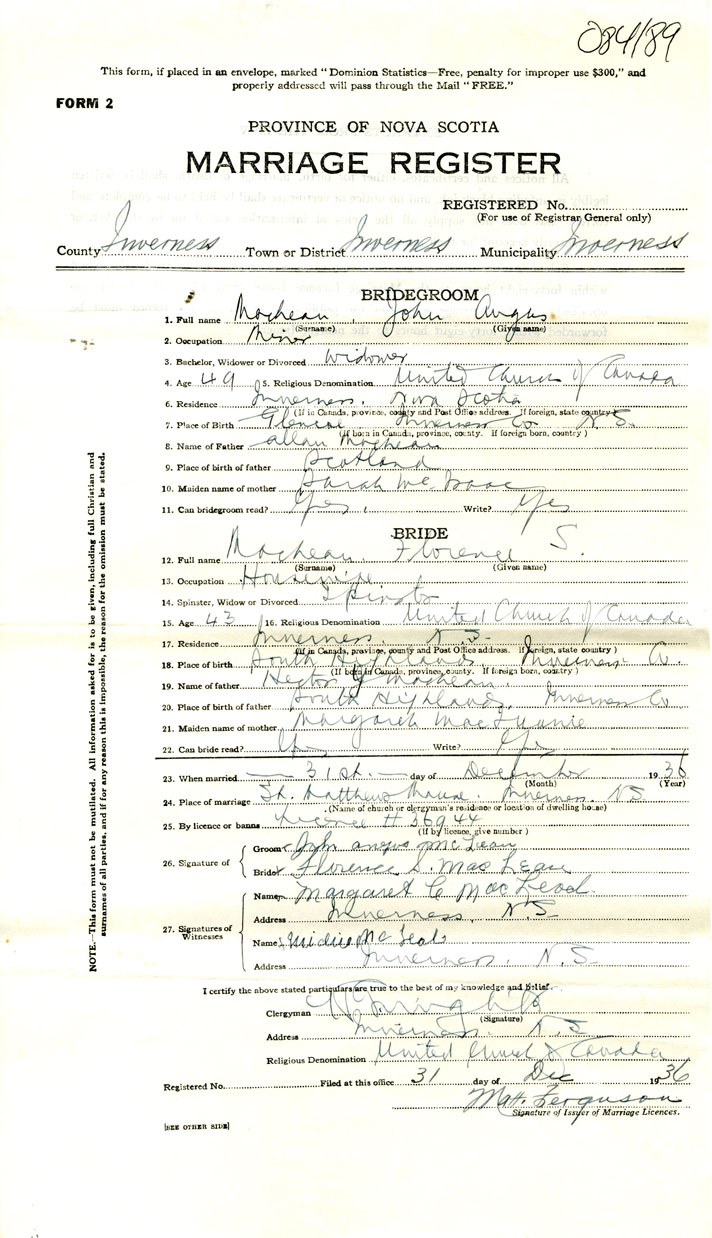 084189
This form, if placed in an envelope, marked "Dominion Statistics—Free, penalty for improper use $300," and
properly addressed will pass through the Mail "FREE."
FORM 2
PROVINCE OF NOVA SCOTIA
MARRIAGE REGISTER
REGISTERED No.
(For use of Registrar General only)
County Inverness Town or District Inverness Municipality Inverness
BRIDEGROOM
1. Full name MacLean John Angus
(Surname) (Given name)
2. Occupation Miner
3. Bachelor, Widower or Divorced Widower
4. Age 49 5. Religious Denomination United Church of Canada
6. Residence Inverness. Nova Scotia
(If in Canada, province, county and Post Office address. If foreign, state country)
7. Place of Birth Glencoe Inverness Co N.S.
(If born in Canada, province, county. If foreign born, country)
8. Name of Father Allan MacLean
9. Place of birth of father Scotland
10. Maiden name of mother Sarah McIsaac
11. Can bridegroom read? Yes Write? Yes
BRIDE
12. Full name MacLean Florence S.
(Surname) (Given name)
13. Occupation Housewife
14. Spinster, Widow or Divorced Spinster
15. Age 43 16. Religious Denomination United Church of Canada
17. Residence Inverness N.S.
(If in Canada, province, county and Post Office address. If foreign, state country)
18. Place of birth South Highlands Inverness Co.
(If born in Canada, province, county. If foreign born, country)
19. Name of father Hector MacLean
20. Place of birth of father South Highlands Inverness Co
21. Maiden name of mother Margaret
22. Can bride read? Yes Write? Yes
23. When married 31st. day of December 1936
(Month) (Year)
24. Place of marriage St. Matthews Manse. Inverness. NS
(Name of church or clergyman's residence or location of dwelling house)
25. By licence or banns Licence # 36944
(If by licence, give number)
26. Signature of
Groom John Angus McLean
Bride Florence S. MacLean
27. Signatures of Witnesses
Name Margaret C MacLeod.
Address Inverness, N.S.
Name
Address Inverness. N.S.
I certify the above stated particulars are true to the best of my knowledge and belief.
Clergyman
(Signature)
Address Inverness. N.S
Religious Denomination United Church of Canada
Registered No. Filed at this office 31 day of Dec 1936
Matt. Ferguson
Signature of Issuer of Marriage Licences.
[SEE OTHER SIDE]
NOTE.—This form must not be mutilated. All information asked for is to be given, including full Christian and
surnames of all parties, and if for any reason this is impossible, the reason for the omission must be stated.